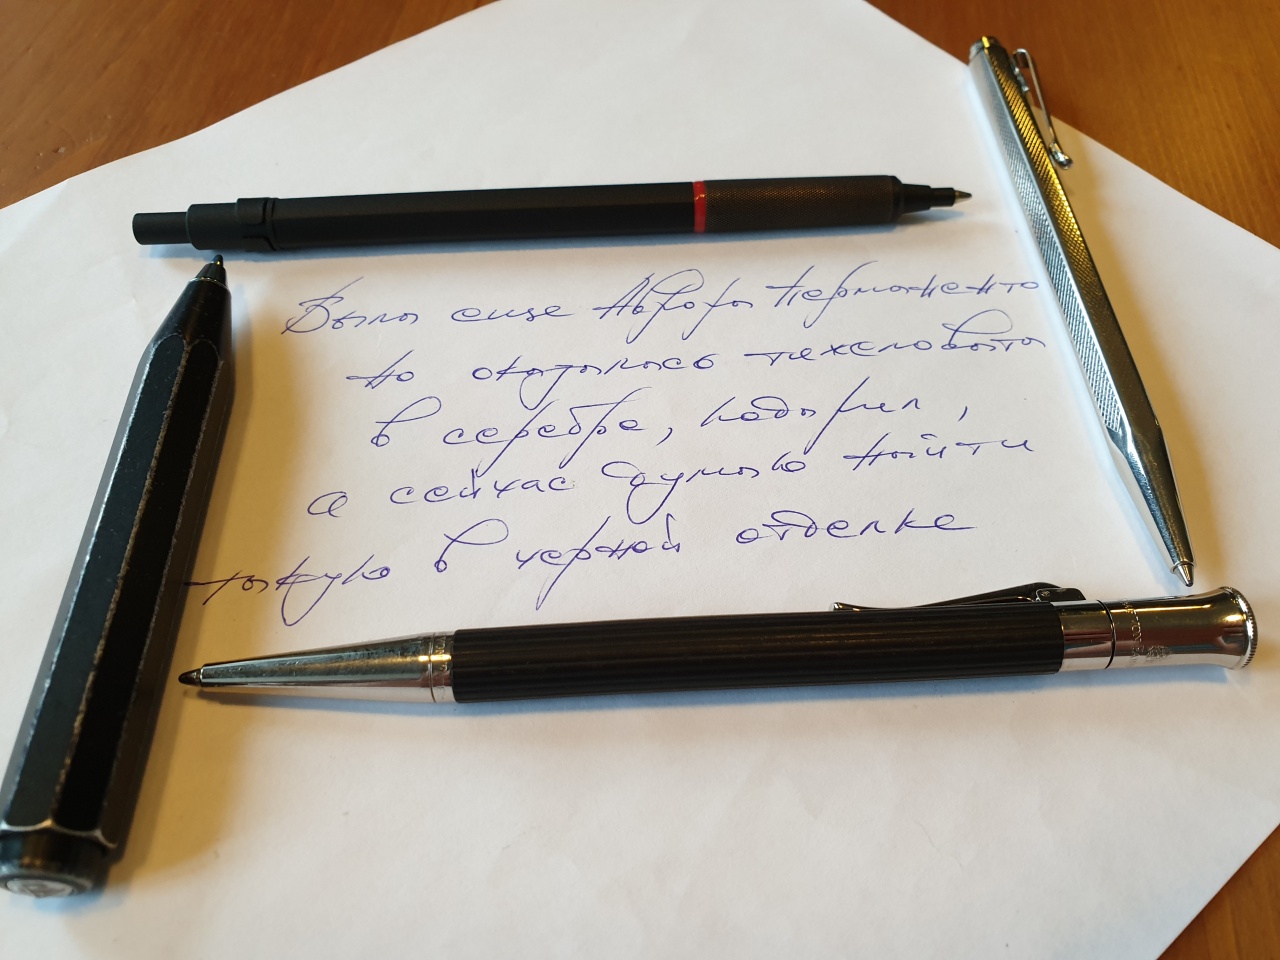 Была еще Аврора Перманенто
но оказалась тяжеловата
в серебре, подарил,
а сейчас думаю найти
такую в черной отделке